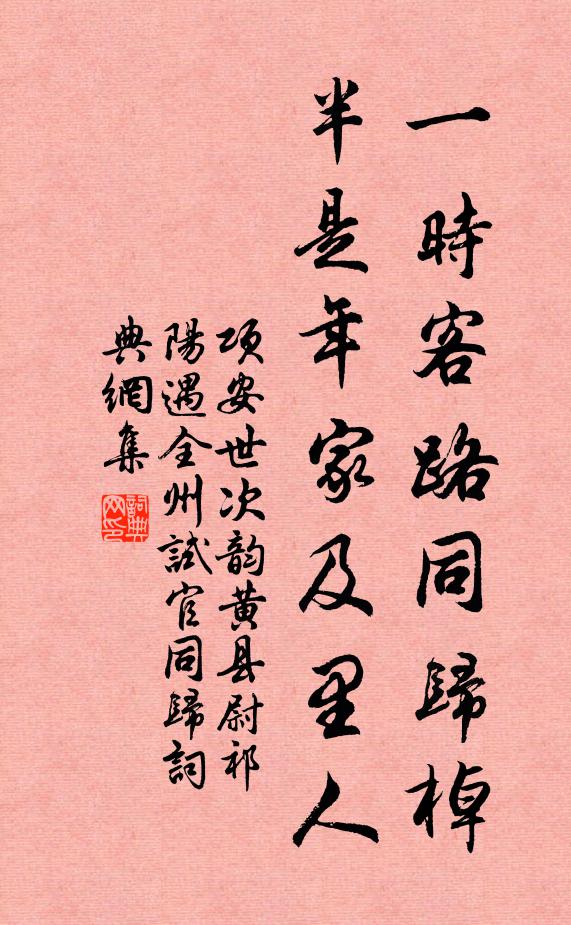 一時客路同歸棹
半是年家及里人
项安世次韵黄县尉祁
陽遇全州試官同歸詞
典網集
詞典网印